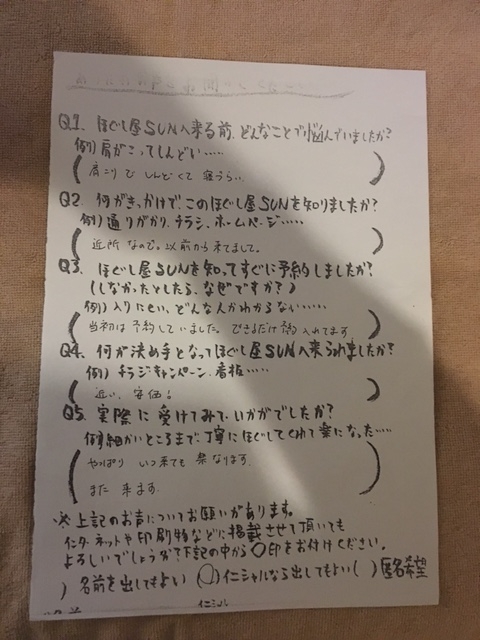 Q1. ほぐし屋SUNへ来る前、どんなことで悩んでいましたか?
例)肩がこってしんどい・・・・・
肩こりで しんどくて 寝づらい。
Q2. 何がきっかけで、このほぐし屋SUNを知りましたか?
例)通りがかり、チラシ、ホームページ・・・・・
近所なので。以前から来てました。
Q3. ほぐし屋SUNを知ってすぐに予約しましたか?
(しなかったとしたら、なぜですか?)
例)入りにくい、どんな人かわからない・・・・・
当初は予約していました。できるだけ 入れてます
Q4. 何が決め手となってほぐし屋SUNへ来られましたか?
例)チラシキャンペーン、看板・・・・・
近い、安価!
Q5. 実際に受けてみて、いかがでしたか?
例)細かいところまで丁寧にほぐしてくれて楽になった・・・・
やっぱり いつ来ても 楽なります。
また 来ます。
※上記のお声についてお願いがあります。
インターネットや印刷物などに掲載させて頂いても
よろしいでしょうか?下記の中から〇印をお付けください。
)名前を出してもよい (〇)イニシャルなら出してもよい ( )匿名希望
イニシャル